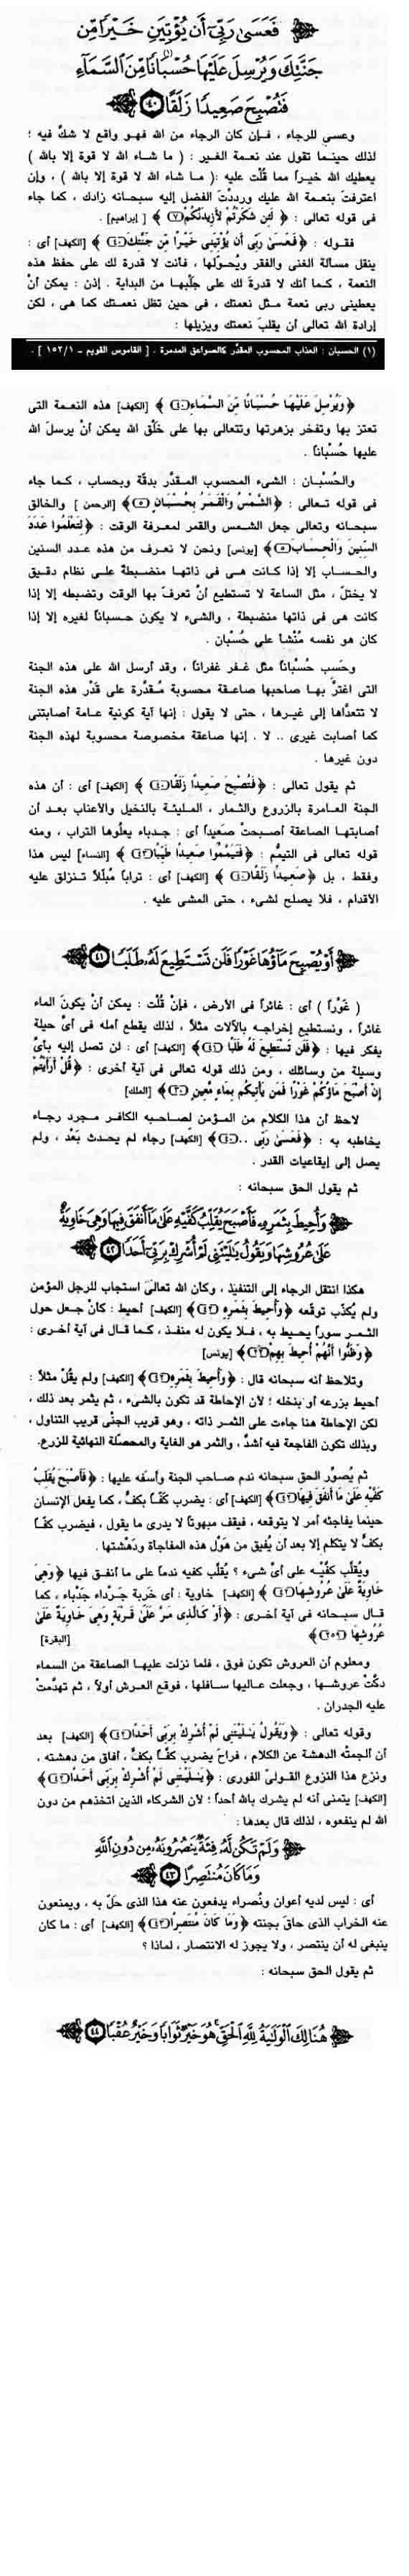 فَعَسَىٰ رَبِّيٓ أَن يُؤْتِيَنِ خَيْرًا مِّن
جَنَّتِكَ وَيُرْسِلَ عَلَيْهَا حُسْبَانًا(١) مِّنَ ٱلسَّمَآءِ
فَتُصْبِحَ صَعِيدًا زَلَقًا ٤٠
وعسى للرجاء ، فإن كان الرجاء من الله فهو واقع لا شكَّ فيه ؛
لذلك حينما تقول عند نعمة الغير : ( ما شاء الله لا قوة إلا بالله )
يعطيك الله خيراً مما قُلْت عليه : ( ما شاء الله لا قوة إلا بالله ) ، وإن
اعترفتَ بنعمة الله عليك ورددْتَ الفضل إليه سبحانه زادك ، كما جاء
فى قوله تعالى : ﴿ لَئِن شَكَرْتُمْ لأَزِيدَنَّكُمْ (٧) ﴾ [ إبراهيم ] .
فقوله : ﴿ فَعَسَىٰ رَبِّى أَن يُؤْتِيَنِى خَيْراً مِّن جَنَّتِكَ (٤٠) ﴾ [الكهف] أى :
ينقل مسألة الغنى والفقر ويُحوِّلها ، فأنت لا قدرة لك على حفظ هذه
النعمة ، كما أنك لا قدرةَ لك على جَلْبها من البداية . إذن : يمكن أنْ
يعطينى ربى نعمة مثل نعمتك ، فى حين تظل نعمتك كما هى ، لكن
إرادة الله تعالى أن يقلبَ نعمتك ويزيلها :
(١) الحسبان : العذاب المحسوب المقدَّر كالصواعق المدمرة . [ القاموس القويم ــ ١٥٢/١ ] .
﴿ وَيُرْسِلَ عَلَيْهَا حُسْبَانًا مِّنَ السَّمَاءِ (٤٠) ﴾ [الكهف] هذه النعمة التى
تعتز بها وتفخر بزهرتها وتتعالى بها على خَلْق الله يمكن أنْ يرسلَ الله
عليها حُسْباناً .
والحُسْبان : الشىء المحسوب المقدَّر بدقَّة وبحساب ، كما جاء
فى قوله تعالى : ﴿ الشَّمْسُ وَالْقَمَرُ بِحُسْبَانٍ (٥) ﴾ [الرحمن ] والخالق
سبحانه وتعالى جعل الشمس والقمر لمعرفة الوقت : ﴿ لِتَعْلَمُوا عَدَدَ
السِّنِينَ وَالْحِسَابَ (٥) ﴾ [يونس] ونحن لا نعرف من هذه عدد السنين
والحساب إلا إذا كانت هى فى ذاتها منضبطة على نظام دقيق
لا يختلّ ، مثل الساعة لا تستطيع أنْ تعرفَ بها الوقت وتضبطه إلا إذا
كانت هى فى ذاتها منضبطة ، والشىء لا يكون حسباناً لغيره إلا إذا
كان هو نفسه مُنْشأ على حُسْبان .
وحَسِب حُسْباناً مثل غفر غفراناً ، وقد أرسل الله على هذه الجنة
التى اغترَّ بها صاحبها صاعقة محسوبة مُقدَّرة على قَدْر هذه الجنة
لا تتعدَّاها إلى غيرها ، حتى لا يقول : إنها آية كونية عامة أصابتنى
كما أصابت غيرى .. لا . إنها صاعقة مخصوصة محسوبة لهذه الجنة
دون غيرها .
ثم يقول تعالى : ﴿ فَتُصْبِحَ صَعِيدًا زَلَقًا (٤٠) ﴾ [الكهف] أى : أن هذه
الجنة العامرة بالزروع والثمار ، المليئة بالنخيل والأعناب بعد أن
أصابتها الصاعقة أصبحتْ صَعيداً أى : جدباء يعلُوها التراب ، ومنه
قوله تعالى فى التيمُّم : ﴿ فَتَيَمَّمُوا صَعِيدًا طَيِّبًا (٤٣) ﴾ [النساء] ليس هذا
وفقط ، بل ﴿ صَعِيدًا زَلَقًا (٤٠) ﴾ [الكهف] أى : تراباً مُبلَّلاً تنزلق عليه
الأقدام ، فلا يصلح لشىء ، حتى المشى عليه .
أَوْ يُصْبِحَ مَآؤُهَا غَوْرًا فَلَن تَسْتَطِيعَ لَهُۥ طَلَبًا ٤١
( غَوْراً ) أى : غائراً فى الأرض ، فإنْ قُلْتَ : يمكن أنْ يكونَ الماء
غائراً ، ونستطيع إخراجه بالآلات مثلاً ، لذلك يقطع أمله فى أىِّ حيلة
يفكر فيها : ﴿ فَلَن تَسْتَطِيعَ لَهُ طَلَبًا (٤١) ﴾ [الكهف] أى : لن تصل إليه بأىِّ
وسيلة من وسائلك ، ومن ذلك قوله تعالى فى آية أخرى : ﴿ قُلْ أَرَأَيْتُمْ
إِنْ أَصْبَحَ مَاؤُكُمْ غَوْرًا فَمَن يَأْتِيكُم بِمَاءٍ مَّعِينٍ (٣٠) ﴾ [الملك]
لاحظ أن هذا الكلام من المؤمن لصاحبه الكافر مجرد رجاء
يخاطبه به : ﴿ فَعَسَىٰ رَبِّى .. (٤٠) ﴾ [الكهف] رجاء لم يحدث بَعْد ، ولم
يصل إلى إيقاعيات القدر .
ثم يقول الحق سبحانه :
وَأُحِيطَ بِثَمَرِهِۦ فَأَصْبَحَ يُقَلِّبُ كَفَّيْهِ عَلَىٰ مَآ أَنفَقَ فِيهَا وَهِيَ خَاوِيَةٌ
عَلَىٰ عُرُوشِهَا وَيَقُولُ يَٰلَيْتَنِي لَمْ أُشْرِكْ بِرَبِّيٓ أَحَدًا ٤٢
هكذا انتقل الرجاء إلى التنفيذ ، وكأن الله تعالى استجاب للرجل المؤمن
ولم يُكذِّب توقعه ﴿ وَأُحِيطَ بِثَمَرِهِ (٤٢) ﴾ [الكهف] أحيط : كأنْ جعل حول
الثمر سوراً يحيط به ، فلا يكون له منفذ ، كما قال فى آية أخرى :
﴿ وَظَنُّوا أَنَّهُمْ أُحِيطَ بِهِمْ (٢٢) ﴾ [يونس]
وتلاحظ أنه سبحانه قال : ﴿ وَأُحِيطَ بِثَمَرِهِ (٤٢) ﴾ [الكهف] ولم يقُلْ مثلاً :
أحيط بزرعه أو بنخله ؛ لأن الإحاطة قد تكون بالشىء ، ثم يثمر بعد ذلك ،
لكن الإحاطة هنا جاءت على الثمر ذاته ، وهو قريب الجنْى قريب التناول ،
وبذلك تكون الفاجعة فيه أشدَّ ، والثمر هو الغاية والمحصّلة النهائية للزرع.
ثم يُصوِّر الحق سبحانه ندم صاحب الجنة وأسفه عليها : ﴿ فَأَصْبَحَ يُقَلِّبُ
كَفَّيْهِ عَلَىٰ مَا أَنفَقَ فِيهَا (٤٢) ﴾ [الكهف] أى : يضرب كَفّاً بكفٍّ ، كما يفعل الإنسان
حينما يفاجئه أمر لا يتوقعه ، فيقف مبهوتاً لا يدرى ما يقول ، فيضرب كفّاً
بكفٍّ لا يتكلم إلا بعد أن يُفيق من هَوْل هذه المفاجأة ودَهْشتها .
ويُقلِّب كفَّيْه على أىِّ شىء ؟ يُقلِّب كفيه ندماً على ما أنفق فيها ﴿ وَهِىَ
خَاوِيَةٌ عَلَىٰ عُرُوشِهَا (٤٢) ﴾ [الكهف] خاوية : أى خَرِبة جَرْداء جَدْباء ، كما
قال سبحانه فى آية أخرى : ﴿ أَوْ كَالَّذِى مَرَّ عَلَىٰ قَرْيَةٍ وَهِىَ خَاوِيَةٌ عَلَىٰ
عُرُوشِهَا (٢٥٩) ﴾ [البقرة]
ومعلوم أن العروش تكون فوق ، فلما نزلت عليها الصاعقة من السماء
دكَّتْ عروشها ، وجعلت عاليها سافلها ، فوقع العرش أولاً ، ثم تهدَّمتْ
عليه الجدران .
وقوله تعالى : ﴿ وَيَقُولُ يَـٰلَيْتَنِى لَمْ أُشْرِكْ بِرَبِّى أَحَدًا (٤٢) ﴾ [الكهف] بعد
أن ألجمتْه الدهشة عن الكلام ، فراح يضرب كفَّاً بكفٍّ ، أفاق من دهشته ،
ونزع هذا النزوع القولىّ الفورى : ﴿ يَـٰلَيْتَنِى لَمْ أُشْرِكْ بِرَبِّى أَحَدًا (٤٢) ﴾
[الكهف] يتمنى أنه لم يشرك بالله أحداً ؛ لأن الشركاء الذين اتخذهم من دون
الله لم ينفعوه ، لذلك قال بعدها :
وَلَمْ تَكُن لَّهُۥ فِئَةٌ يَنصُرُونَهُۥ مِن دُونِ ٱللَّهِ
وَمَا كَانَ مُنتَصِرًا ٤٣
أى : ليس لديه أعوان ونُصراء يدفعون عنه هذا الذى حَلّ به ، ويمنعون
عنه الخراب الذى حاقَ بجنته ﴿ وَمَا كَانَ مُنتَصِرًا (٤٣) ﴾ [الكهف] أى : ما كان
ينبغى له أن ينتصر ، ولا يجوز له الانتصار ، لماذا ؟
ثم يقول الحق سبحانه :
هُنَالِكَ ٱلْوَلَٰيَةُ لِلَّهِ ٱلْحَقِّ هُوَ خَيْرٌ ثَوَابًا وَخَيْرٌ عُقْبًا ٤٤